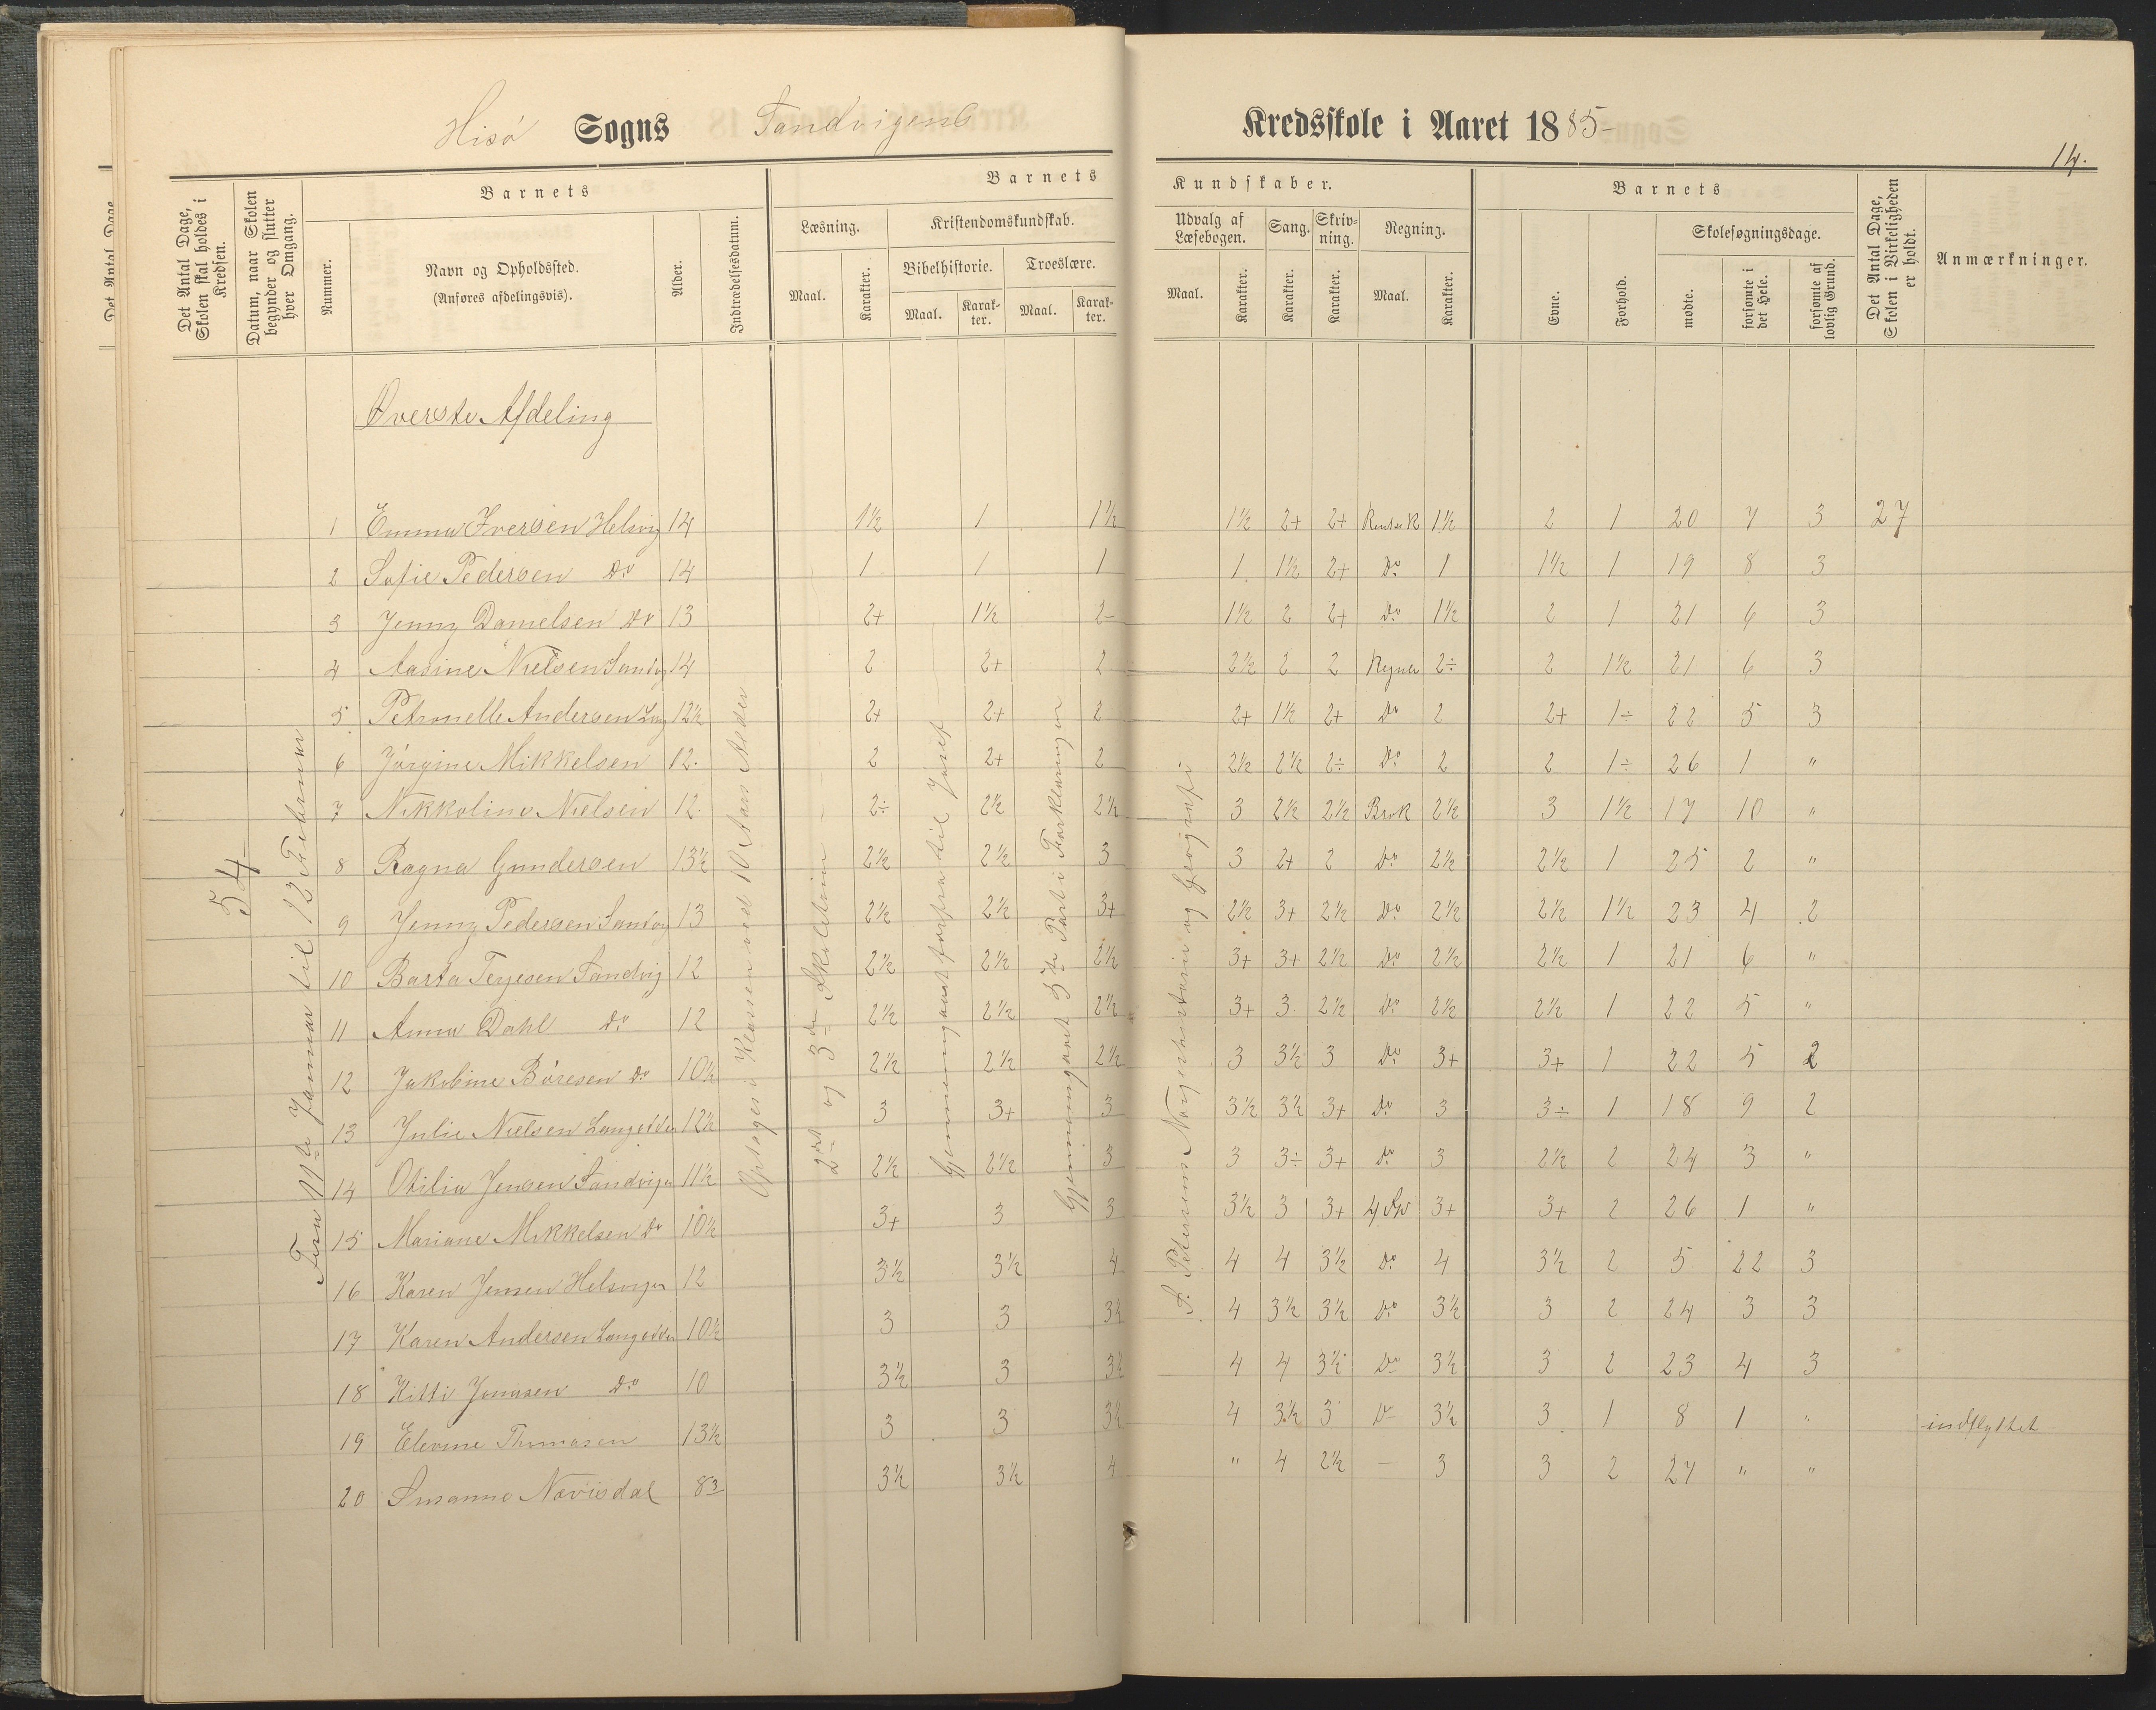 Hisö Sogns Sandvigens Kredsskole i Aaret 1885-
14.
Det Antal Dage, Skolen skal holdes i Kredsen.
Datum, naar Skolen begynder og slutter hver Omgang.
Barnets
Nummer.
Navn og Opholdssted.
(Anføres afdelingsvis).
Alder.
Indtrædelsesdatum.
Barnets Kundskaber.
Læsning.
Maal.
Karakter.
Kristendomskundskab.
Bibelhistorie.
Maal.
Karakter.
Troeslære.
Maal.
Karakter.
Udvalg af Læsebogen.
Maal.
Karakter.
Sang.
Karakter.
Skrivning.
Karakter.
Regning.
Maal.
Karakter.
Barnets
Evne.
Forhold.
Skolesøgningsdage.
mødte.
forsømte i det Hele.
forsømte af lovlig Grund.
Det Antal Dage, Skolen i Virkeligheden er holdt.
Anmærkninger.
Øverste Afdeling
54
Januar til 12 Februar
Optages i Klassen ved 10 Aars Alder
2det og 3die Skoletrin
Gjennemgaaet forfra til Josef
Gjennemgaaet 3die Part i Forklaringen
S. Petersens Norgeshistorie og Geografi
1 Emma Iversen Helsvig 14 1½ 1 1½ 1½ 2+ 2+ 1½ 2 1 20 7 3 27
2 Sofie Pedersen Do 14 1 1 1 1 1½ 2+ Do 1 1½ 1 19 8 3
3 Jenny Danielsen Do 13 2+ 1½ 2- 1½ 2 2+ Do 1½ 2 1 21 6 3
4 Aasine Nielsen Sandvg 14 2 2+ 2 2½ 2 2 2÷ 2 1½ 21 6 3
5 Petronelle Andersen Lang 12½ 2+ 2+ 2 2+ 1½ 2+ Do 2 2+ 1÷ 22 5 3
6 Jörgine Mikkelsen 12. 2 2+ 2 2½ 2½ 2÷ Do 2 2 1÷ 26 1 "
7 Nikkoline Nielsen 12. 2÷ 2½ 2½ 3 2½ 2½ Brøk 2½ 3 1½ 17 10 "
8 Ragna Gundersen 13½ 2½ 2½ 3 3 2+ 2 Do 2½ 2½ 1 25 2 "
9 Jenny Pedersen Sandvg 13 2½ 2½ 3+ 2½ 3+ 2½ Do 2½ 2½ 1½ 23 4 2
10 Barta Terjesen Sandvig 12 2½ 2½ 2½ 3+ 3+ 2½ Do 2½ 2½ 1 21 6 "
11 Anna Dahl Do 12 2½ 2½ 2½ 3+ 3 2½ Do 2½ 2½ 1 22 5 "
12 Jakobine Böresen Do 10½ 2½ 2½ 2½ 3 3½ 3 Do 3+ 3+ 1 22 5 2
13 Julie Nielsen Langodden 12½ 3 3+ 3 3½ 3½ 3+ Do 3 3÷ 1 18 9 2
14 Otilia Jensen Sandvign 11½ 2½ 2½ 3 3 3÷ 3+ Do 3 2½ 2 24 3 "
15 Mariane Mikkelsen Do 10½ 3+ 3 3 3½ 3 3+ 3+ 3+ 2 26 1 "
16 Karen Jensen Helsvigen 12 3½ 3½ 4 4 4 3½ Do 4 3½ 2 5 22 3
17 Karen Andersen Langodden 10½ 3 3 3½ 4 3½ 3½ Do 3½ 3 2 24 3 3
18 Kitti Jonasen Do 10 3½ 3 3½ 4 4 3½ Do 3½ 3 2 23 4 3
19 Elevine Thomasen 13½ 3 3 3½ 4 3½ 3 Do 3½ 3 1 8 1 " indflyttet
20 Susanne Nævisdal 8 3½ 3½ 4 " 4 2½ — 3 3 2 27 " "